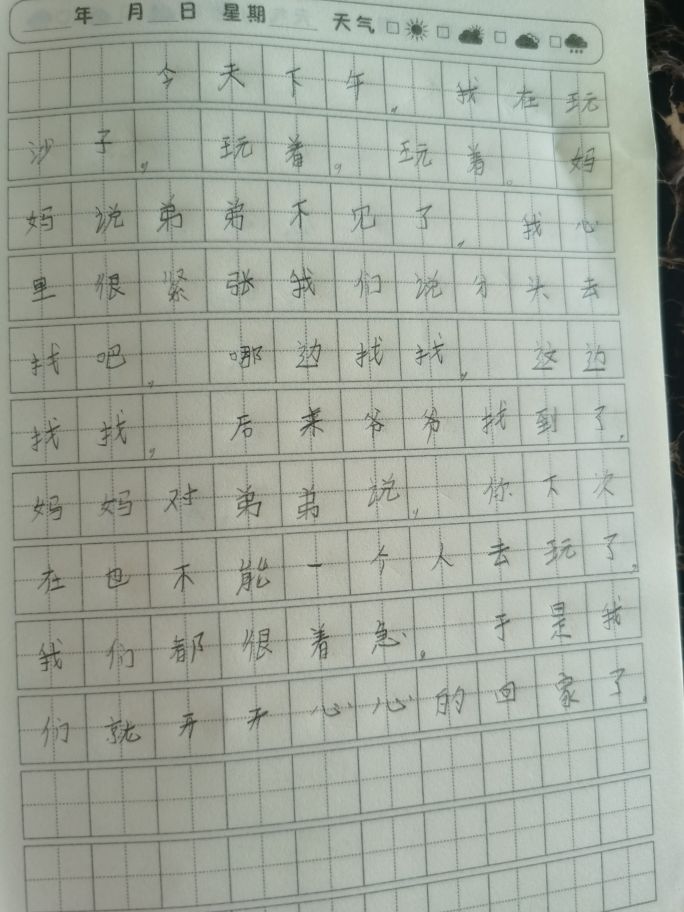 年 月 日 星期 天气
今天下午，我在玩
沙子，玩着。玩着。妈
妈说弟弟不见了，我心
里很紧张我们说分头去
找吧，哪边找找，这边
找找，后来爷爷找到了，
妈妈对弟弟说，你下次
在也不能一个人去玩了，
我们都很着急。于是我
们就开开心心的回家了。